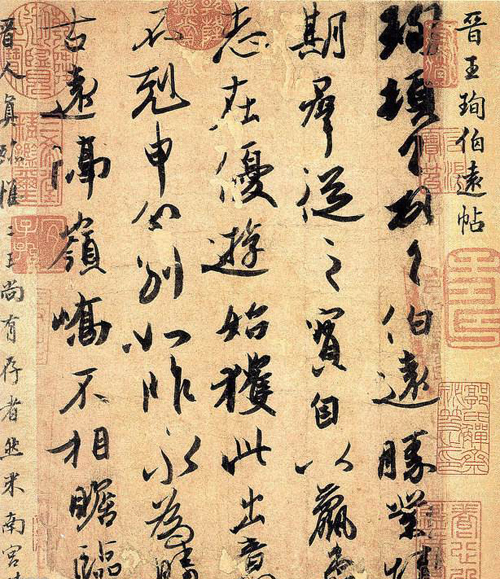 晋王珣伯遠帖
珣頓首頓首伯遠勝業情
期群從之寶自以羸患
志在優游始獲此出意
不剋申分別如昨永為疇
古遠隔嶺嶠不相瞻臨
晋人真跡惟二王尚有存者然米南宮